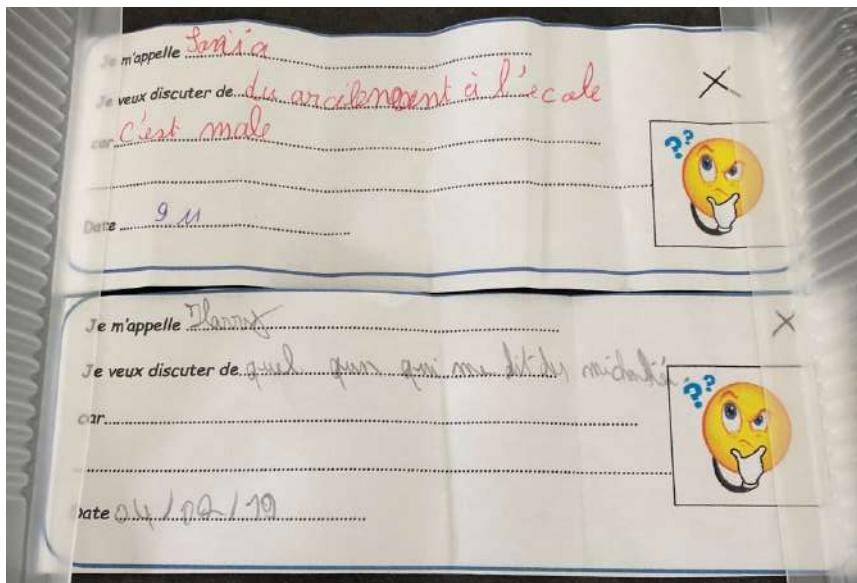 Je m'appelle Sania
Je veux discuter de du arcilement à l'ecole
car c'est male
Date 9 11
??
Je m'appelle Harry
Je veux discuter de quel qun qui me dit des michantié.
car
Date 04/02/19
??